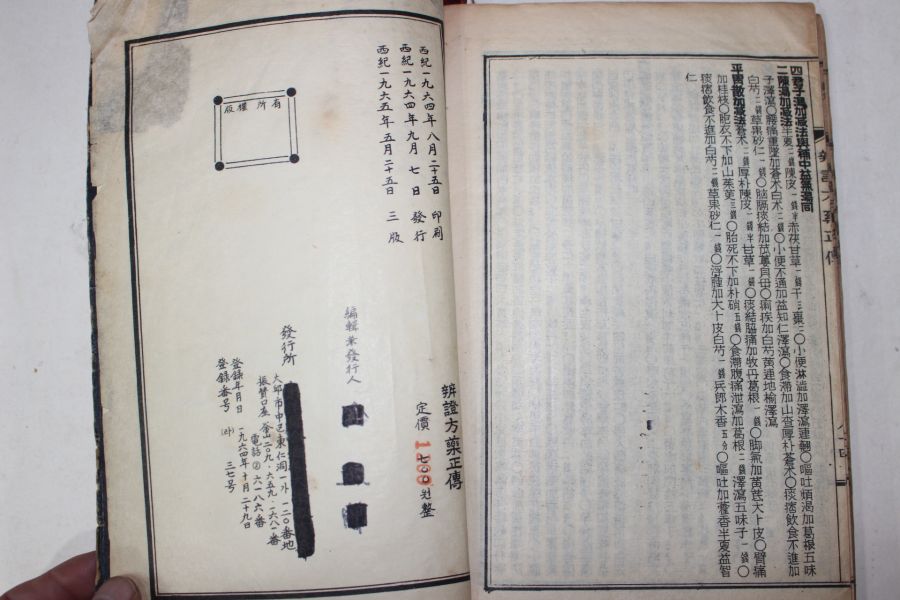 四君子湯加減法與補中益氣湯同
二陳湯加減法半夏二錢陳皮一錢半赤茯甘草一錢干三棗二〇小便淋澁加澤瀉連翹〇嘔吐煩渴加葛根五味
子澤瀉〇腰痛重墜加蒼朮白朮二〇小便不通加益知仁澤瀉〇食滯加山査厚朴蒼朮〇痰痞飮食不進加
白芍二錢草果砂仁一錢〇胸膈痰結加苽蔞貝母〇痢疾加白芍黃連地楡澤瀉
平胃散加減法蒼朮二錢厚朴陳皮一錢半甘草一錢〇痰結脇痛加牧丹葛根一錢〇脚氣加黃芪大卜皮〇臂痛
加桂枝〇胞衣不下加山茱萸三錢〇胎死不下加朴硝五錢〇食滯腹痛泄瀉加葛根二錢澤瀉五味子一錢〇
痰痞飮食不進加白芍二錢草果砂仁一錢〇浮腫加大卜皮白芍一錢兵郎木香五分〇嘔吐加藿香半夏益智
仁
西紀一九六四年八月二十五日 印刷
西紀一九六四年九月七日 發行
西紀一九六五年五月二十五日 三版
版權所有
辨證方藥正傳
定價 七〇〇원整
編輯兼發行人
發行所
大邱市中區東仁洞一外一二〇番地
振替口座 釜山二〇九·六五九·一六八一番
電話②六一八六番
登錄年月日 一九六四年十月二十九日
登錄番号 (라) 三七号